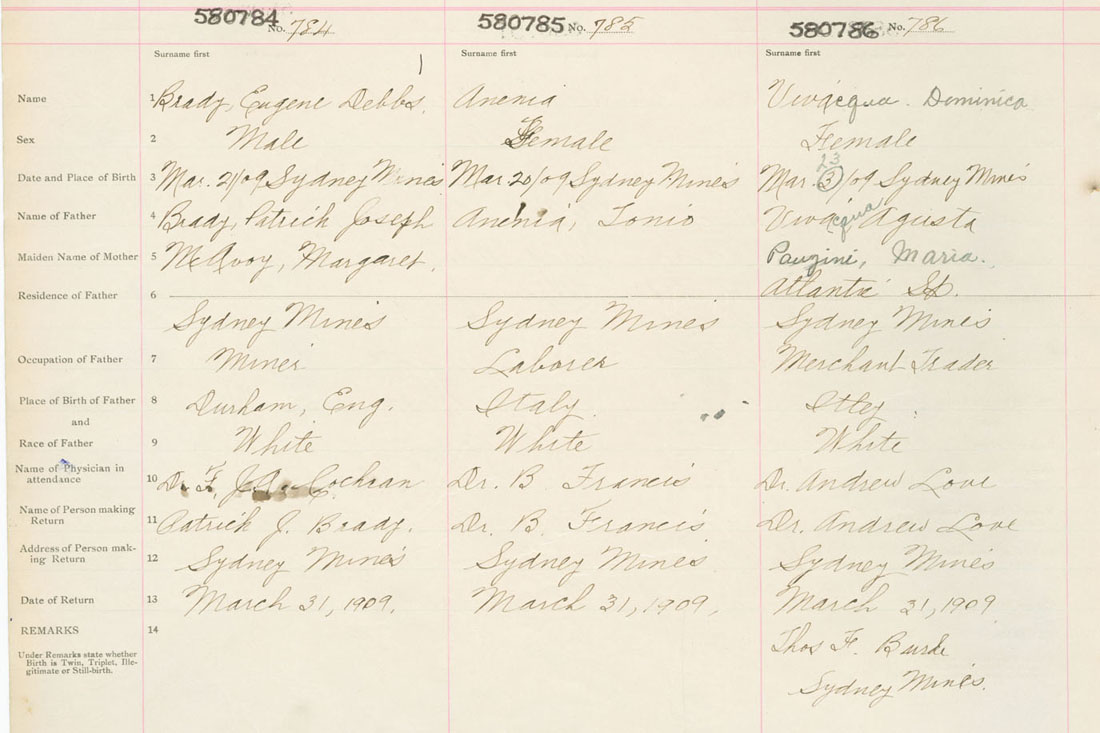 580784 No. 784 580785 No. 785 580786 No. 786
Surname first Surname first Surname first
Name 1 Brady, Eugene Debbs. Anenia Vivacqua. Dominica
Sex 2 Male Female Female
Date and Place of Birth 3 Mar. 21/09 Sydney Mines Mar 20/09 Sydney Mines Mar 23 3/09 Sydney Mines
Name of Father 4 Brady, Patrick Joseph Anenia, Tonio Vivacqua Agusta
Maiden Name of Mother 5 McAvoy, Margaret. Pauzini, Maria.
Atlantic St.
Residence of Father 6
Sydney Mines Sydney Mines Sydney Mines
Occupation of Father 7 Miner Laborer Merchant Trader
Place of Birth of Father 8 Durham, Eng. Italy Itley
and
Race of Father 9 White White White
Name of Physician in attendance 10 Dr. F. Cochran Dr. B Francis Dr. Andrew Love
Name of Person making Return 11 Patrick J. Brady. Dr. B. Francis Dr. Andrew Love
Address of Person mak-ing Return 12 Sydney Mines Sydney Mines Sydney Mines
Date of Return 13 March 31, 1909. March 31, 1909, March 31, 1909
REMARKS 14 Thos F.
Under Remarks state whether
Birth is Twin, Triplet, Ille-
gitimate or Still-birth.
Sydney Mines.